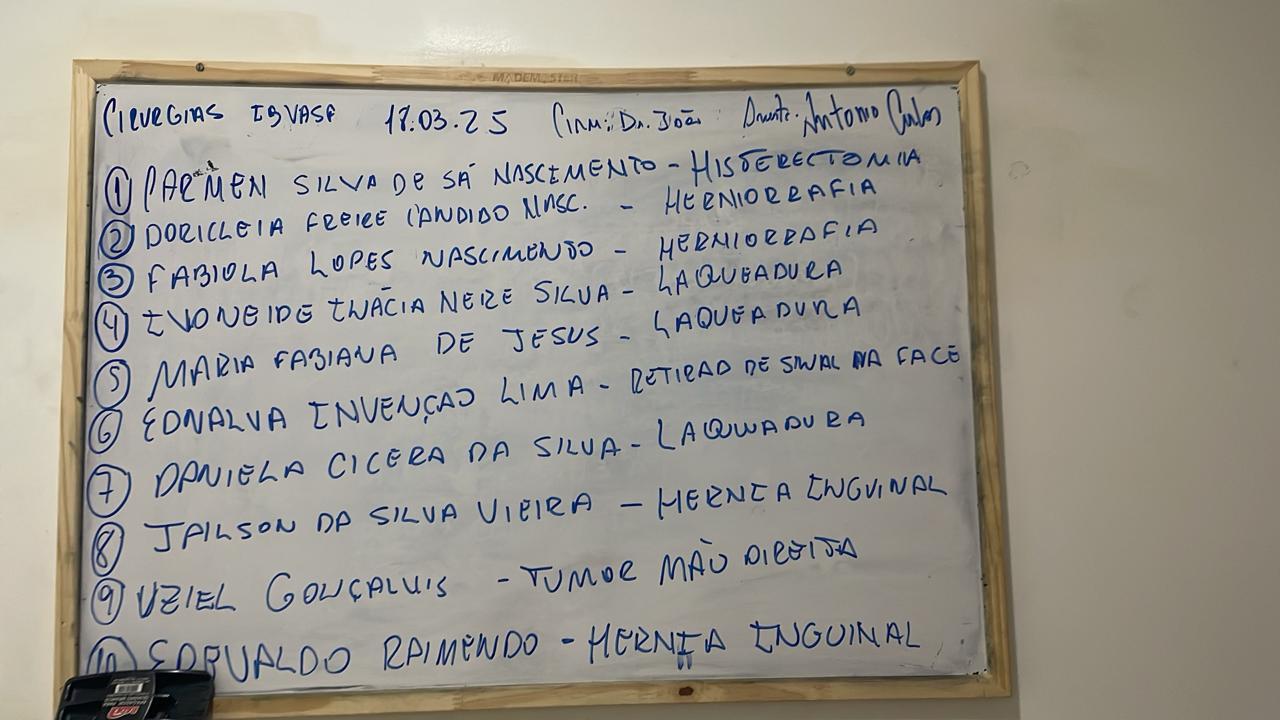 MADEM STER
CIRUGIAS IBVASF 18.03.25 CIRU: Dr. João Anest. Antonio Carlos
① PARMEN SILVA DE SÁ NASCIMENTO - HISTERECTOMIA
② DORICLEIA FREIRE CANDIDO NASC. - HERNIORRAFIA
③ FABIOLA LOPES NASCIMENDO - HERNIORRAFIA
④ IVONEIDE INÁCIA NERE SILVA - LAQUEADURA
⑤ MARIA FABIANA DE JESUS - LAQUEADURA
⑥ EDNALVA INVENÇAO LIMA - RETIRAD DE SINAL NA FACE
⑦ DANIELA CICERA DA SILVA - LAQUADURA
⑧ JAILSON DA SILVA VIEIRA - HERNIA INGUINAL
⑨ UZIEL GONÇALUIS - TUMOR MÃO DIREITA
⑩ EDRVALDO RAIMENDO - HERNIA INGUINAL